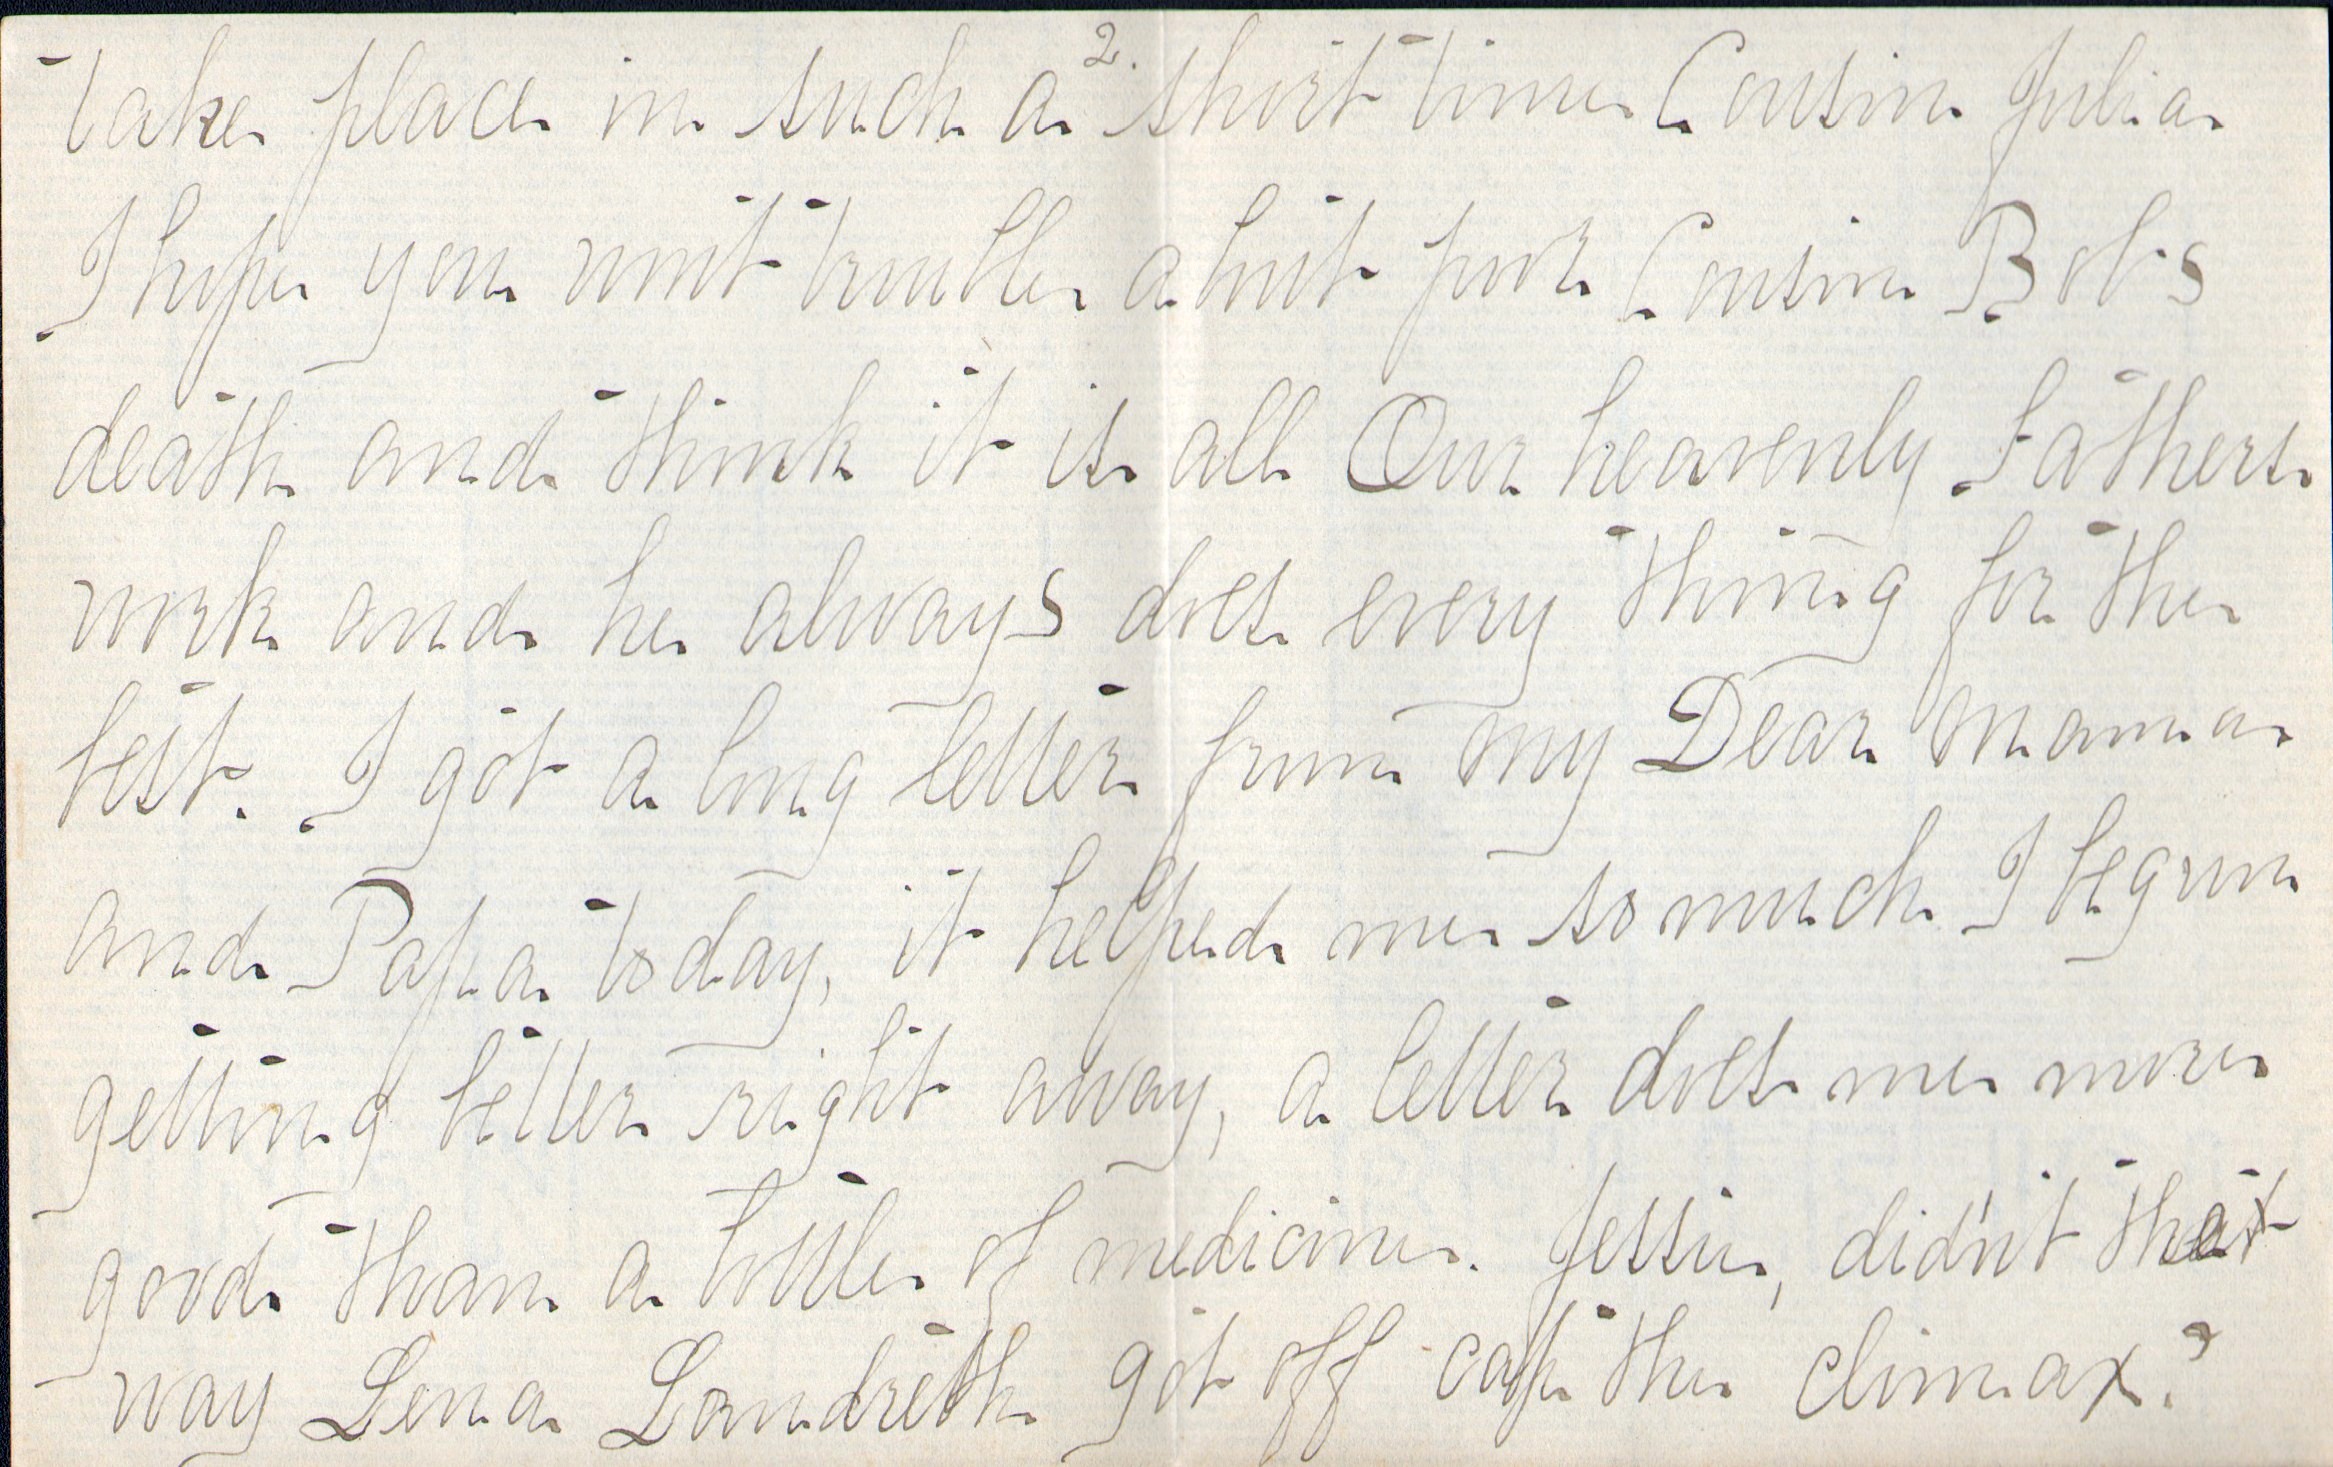 2.
take place in such a short time Cousin Julia
I hope you wont trouble about poor Cousin Bobs
death and think it is all Our heavenly Fathers
work and he always does every thing for the
best. I got a long letter from my Dear Mama
and Papa today, it helped me so much I begun
getting better right away, a letter does me more
good than a bottle of medicine. Jessie, didn't that
way Lena Landreth got off cap the climax?